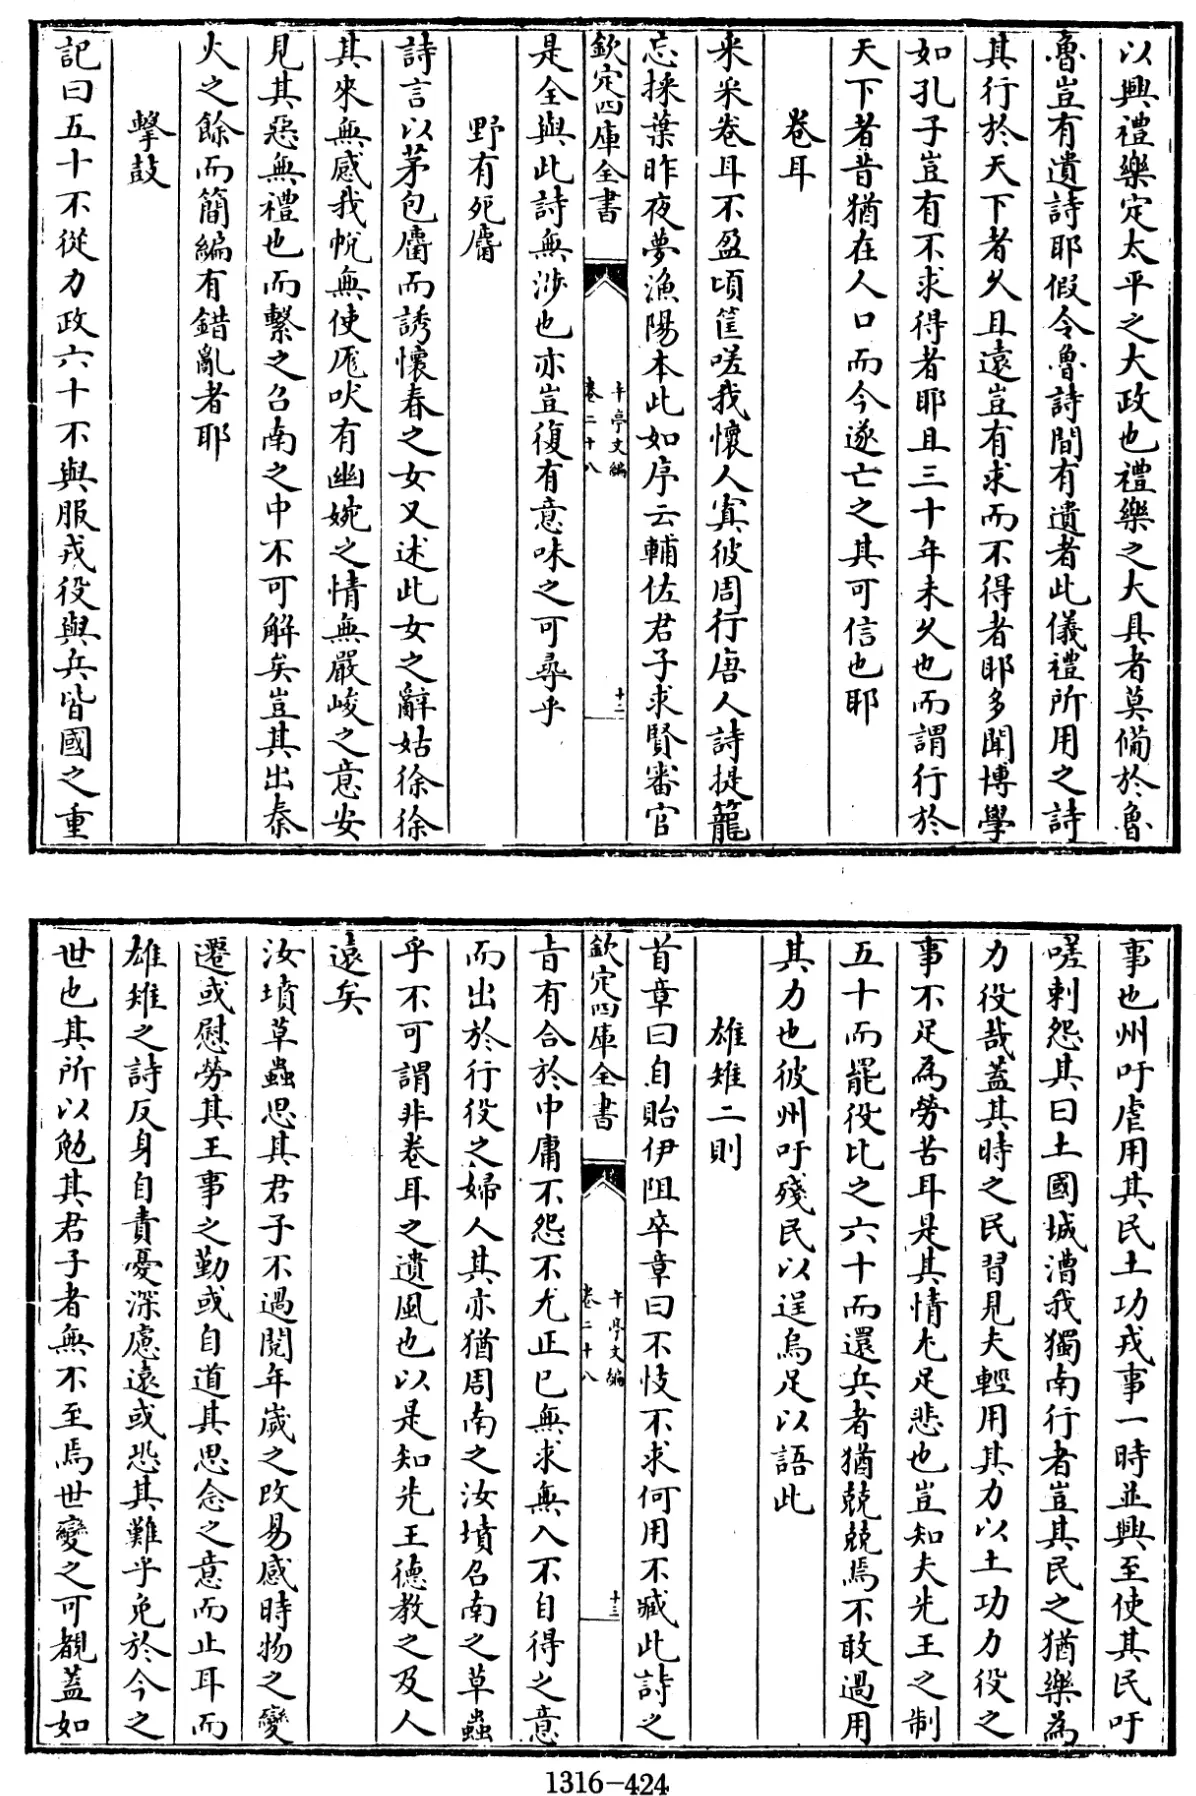 以興禮樂定太平之大政也禮樂之大具者莫備於魯
魯豈有遺詩耶假令魯詩間有遺者此儀禮所用之詩
其行於天下者久且遠豈有求而不得者耶多聞博學
如孔子豈有不求得者耶且三十年未久也而謂行於
天下者昔猶在人口而今遂亡之其可信也耶
卷耳
采采卷耳不盈頃筐嗟我懷人寘彼周行唐人詩提籠
忘採葉昨夜夢漁陽本此如序云輔佐君子求賢審官
欽定四庫全書
午亭文編
卷二十八
十二
是全與此詩無涉也亦豈復有意味之可尋乎
野有死麕
詩言以茅包麕而誘懷春之女又述此女之辭姑徐徐
其來無感我帨無使尨吠有幽婉之情無嚴峻之意安
見其惡無禮也而繫之召南之中不可解矣豈其出秦
火之餘而簡編有錯亂者耶
擊鼓
記曰五十不從力政六十不與服戎役與兵皆國之重
事也州吁虐用其民土功戎事一時並興至使其民吁
嗟刺怨其曰土國城漕我獨南行者豈其民之猶樂為
力役哉蓋其時之民習見夫輕用其力以土功力役之
事不足為勞苦耳是其情尤足悲也豈知夫先王之制
五十而罷役比之六十而還兵者猶兢兢焉不敢過用
其力也彼州吁殘民以逞烏足以語此
雄雉二則
首章曰自貽伊阻卒章曰不忮不求何用不臧此詩之
欽定四庫全書
午亭文編
卷二十八
十三
旨有合於中庸不怨不尤正已無求無入不自得之意
而出於行役之婦人其亦猶周南之汝墳召南之草蟲
乎不可謂非卷耳之遺風也以是知先王德教之及人
遠矣
汝墳草蟲思其君子不過閱年歲之改易感時物之變
遷或慰勞其王事之勤或自道其思念之意而止耳而
雄雉之詩反身自責憂深慮遠或恐其難乎免於今之
世也其所以勉其君子者無不至焉世變之可覩蓋如
1316-424